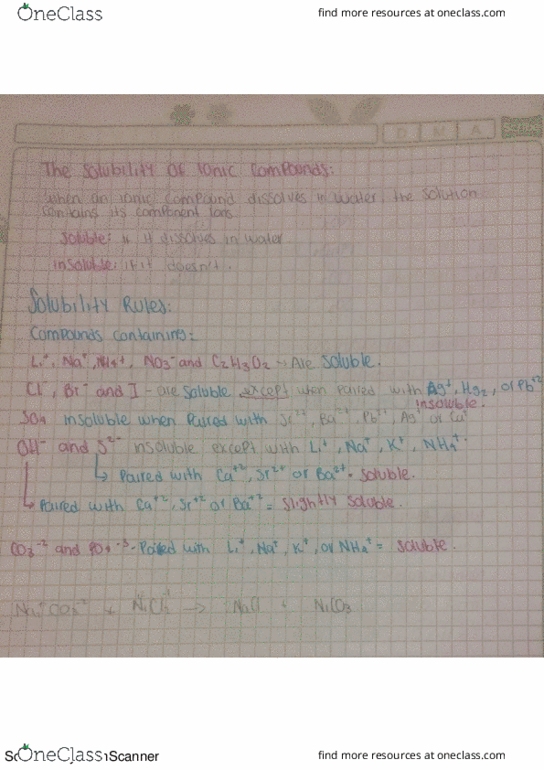 OneClass find more resources at oneclass.com
D M A
The Solubility Of Ionic Compounds:
when an ionic compound dissolves in water, the solution
contains its component ions.
Soluble: if it dissolves in water
insoluble: if it doesn't.
Solubility Rules:
Compounds containing:
Li⁺, Na⁺, NH4⁺, NO3⁻ and C2H3O2 - Are Soluble.
Cl⁻, Br⁻ and I - are soluble except when Paired with Ag⁺, Hg2, or Pb⁺²
insoluble.
SO4 insoluble when Paired with Sr²⁺, Ba²⁺, Pb²⁺, Ag⁺ or
OH⁻ and S²⁻ insoluble except with Li⁺, Na⁺, K⁺, NH4⁺.
Paired with Ca⁺², Sr²⁺ or Ba²⁺ - soluble.
Paired with Ca⁺², Sr⁺² or Ba⁺² = Slightly Soluble.
CO3⁻² and PO4⁻³ - Paired with Li⁺, Na⁺, K⁺, or NH4⁺ = soluble.
→ NaCl + NiCO3
OneClass Scanner find more resources at oneclass.com